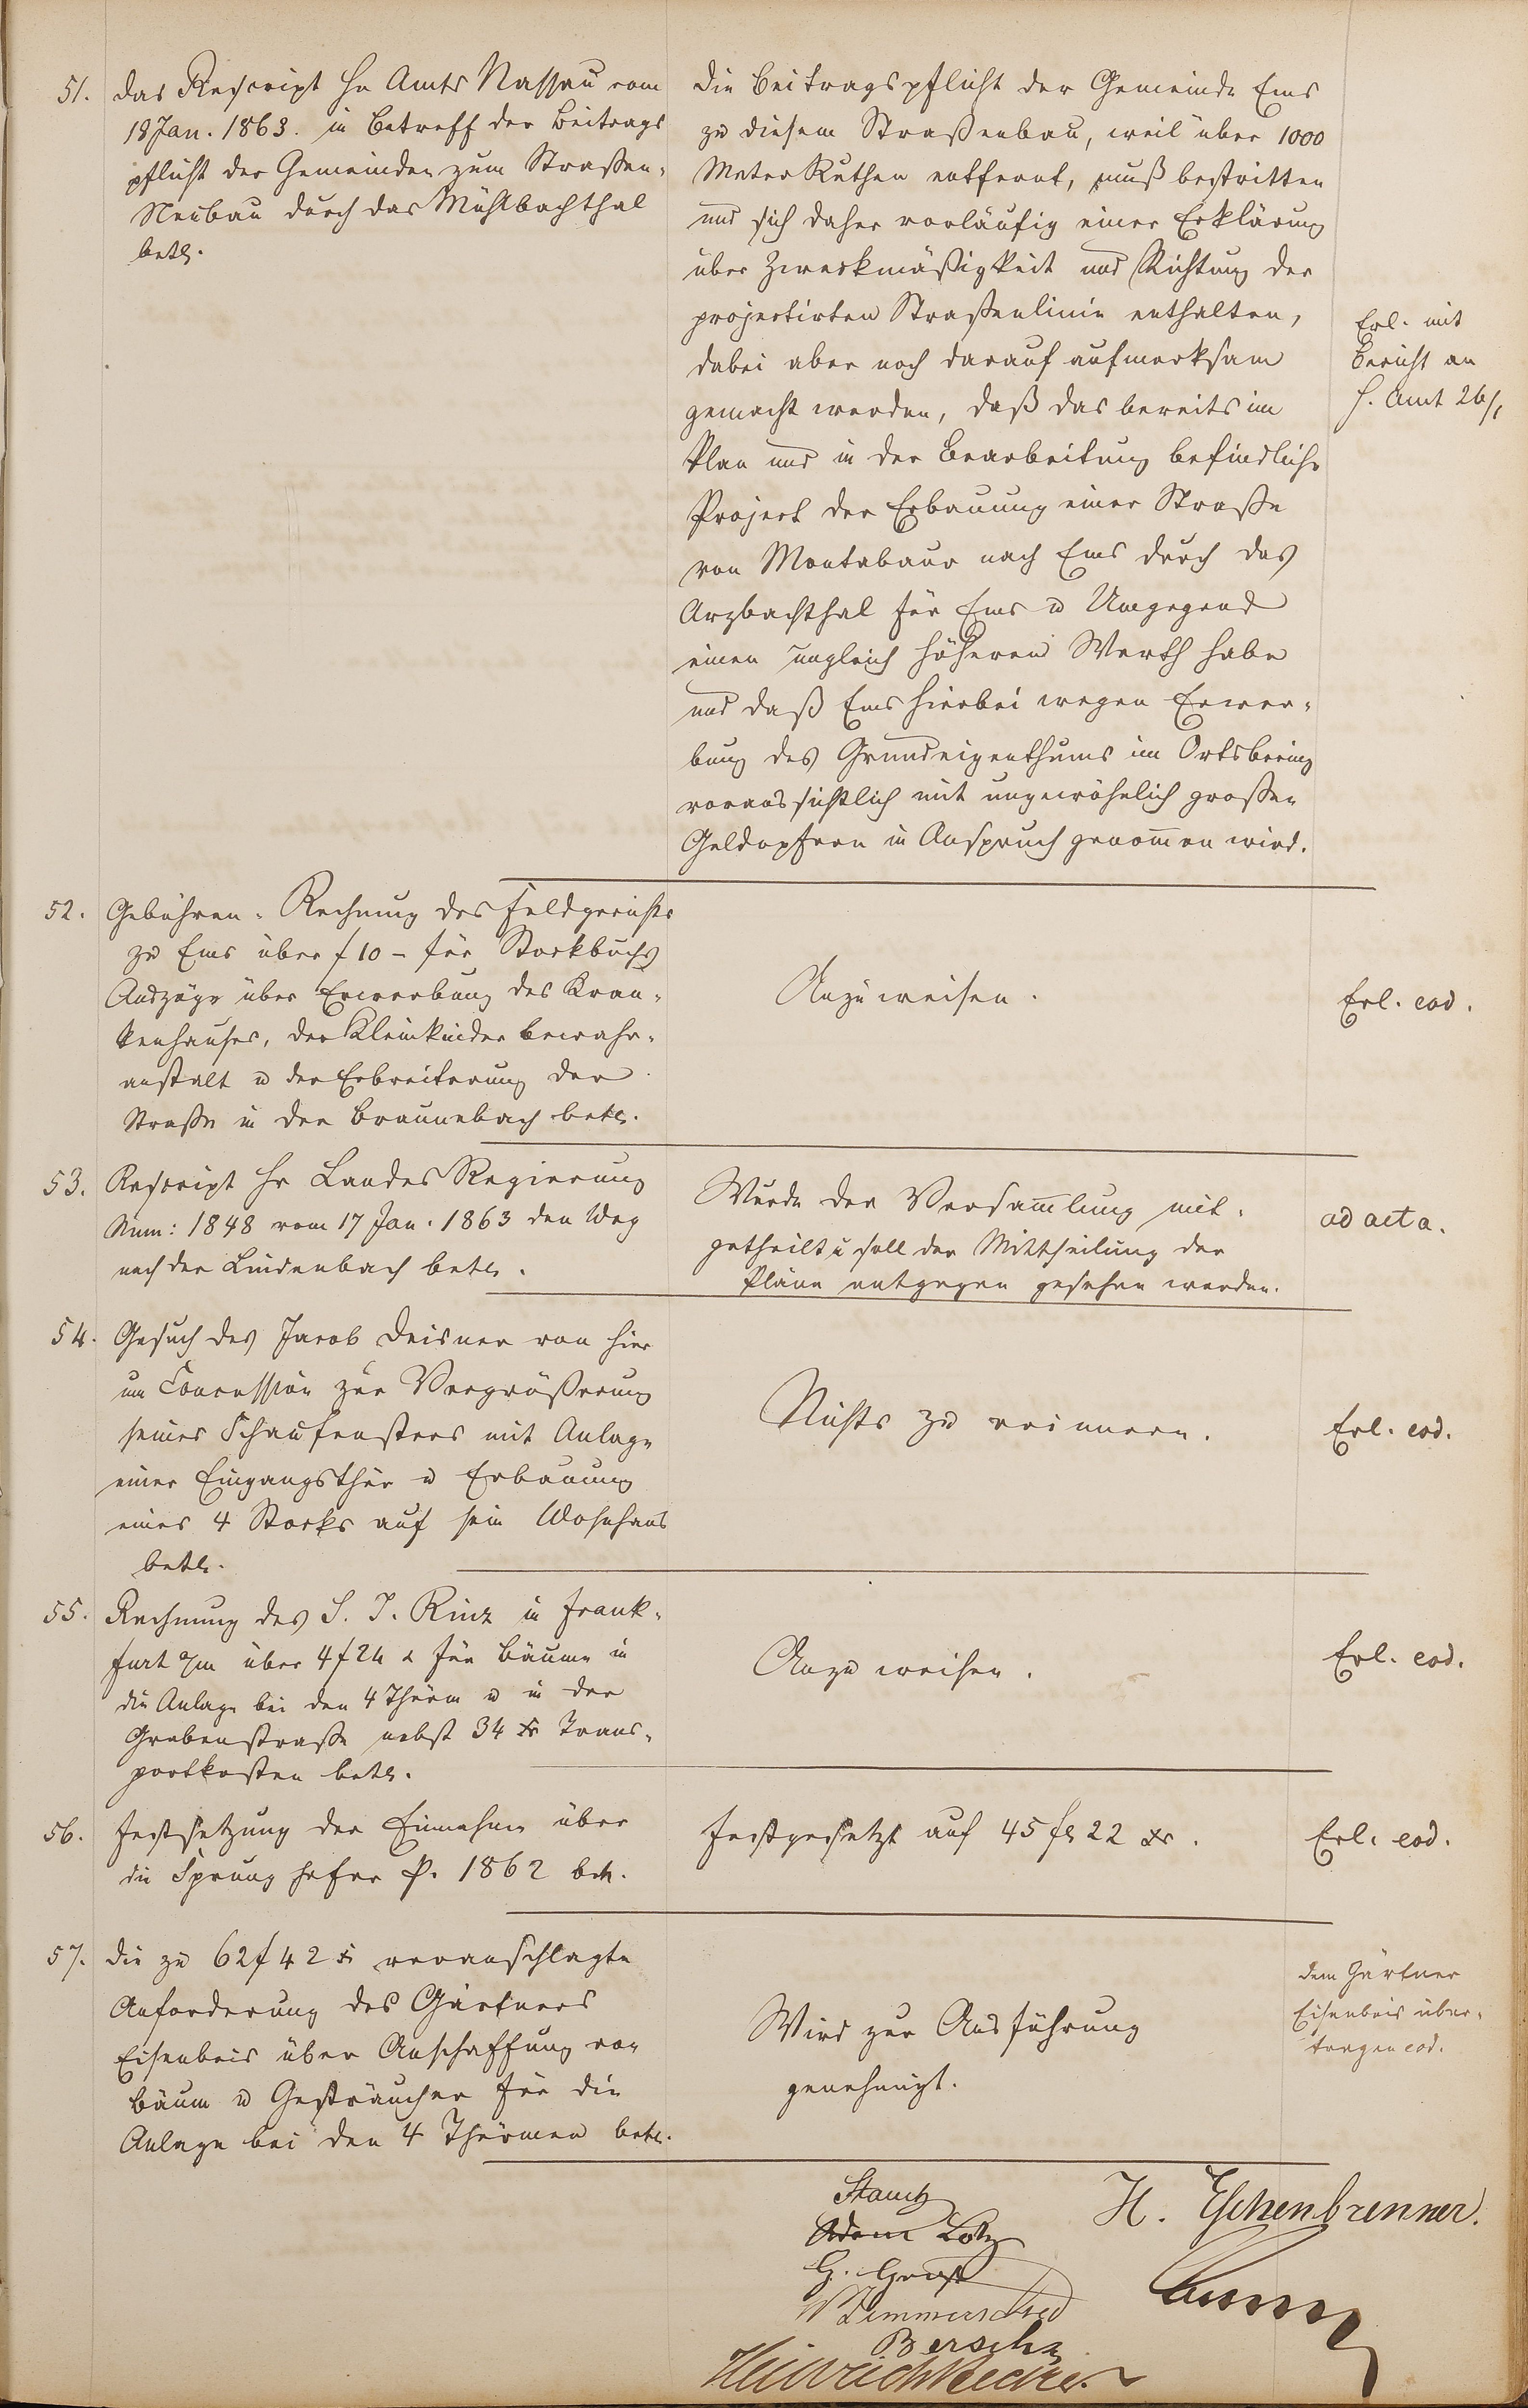 51. das Rescript Hn Amts Nassau vom
18 Jan. 1863. in Betreff der Beitrags
pflicht der Gemeinden zum Straßen-
Neubau durch das Mühlbachthal
betr.
Die Beitragspflicht der Gemeinde Ems
zu diesem Straßenbau, weil über 1000
Meter Ruthen entfernt, muß bestritten
und sich daher vorläufig einer Erklärung
über Zweckmäßigkeit und Richtung der
projectirten Straßenlinie enthalten,
dabei aber noch darauf aufmerksam
gemacht werden, daß das bereits im
Plan und in der Bearbeitung befindliche
Project der Erbauung einer Straße
von Montabaur nach Ems durch das
Arzbachthal für Ems u Umgegend
einen ungleich höheren Werth habe
und daß Ems hierbei wegen Erwer-
bung des Grundeigenthums im Ortsbering
voraussichtlich mit ungewöhnlich großen
Geldopfern in Anspruch genom̄en wird.
Erl. mit
Bericht an
H. Amt 26/1
52. Gebühren-Rechnung des Feldgerichts
zu Ems über f 10 – für Stockbuchs
Auszüge über Erwerbung des Kran-
kenhauses, der Kleinkinder bewahr-
anstalt u der Erbreiterung der
Straße in der Braunebach betr.
Anzuweisen.
Erl. eod.
53. Rescript Hr Landes Regierung
Num: 1848 vom 17 Jan. 1863 den Weg
nach der Lindenbach betr.
Wurde der Versam̄lung mit-
getheilt u soll der Mittheilung der
Pläne entgegen gesehen werden.
ad acta.
54. Gesuch des Jacob Deisner von hier
um Concession zur Vergrößerung
seines Schaufensters mit Anlage
einer Eingangsthür u Erbauung
eines 4 Stocks auf sein Wohnhaus
betr.
Nichts zu erinnern.
Erl. eod.
55. Rechnung des S. J. Rinz in Frank-
furt a/m über 4 f 24 x für Bäume in
die Anlage bei den 4 Thürm u in der
Grabenstraße nebst 34 xr Trans-
portkosten betr.
Anzuweisen.
Erl. eod.
56. Festsetzung der Einnahme über
die Sprung hafer p. 1862 betr.
Festgesetzt auf 45 fl 22 xr.
Erl. eod.
57. Die zu 62 f 42 x veranschlagte
Anforderung des Gärtners
Eisenbeis über Anschaffung von
Bäum u Gesträucher für die
Anlage bei den 4 Thürmen betr.
Wird zur Ausführung
genehmigt.
dem Gärtner
Eisenbeis über-
tragen eod.
Adam Lotz
H. Eschenbrenner.
Heinrich Becker